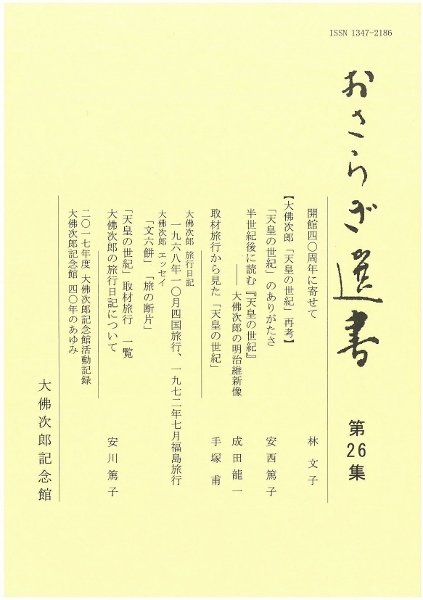 ISSN 1347-2186
おさらぎ選書
第26集
開館四〇周年に寄せて 林 文子
【大佛次郎「天皇の世紀」再考】
「天皇の世紀」のありがたさ 安西篤子
半世紀後に読む『天皇の世紀』
――大佛次郎の明治維新像 成田龍一
取材旅行から見た「天皇の世紀」 手塚 甫
大佛次郎 旅行日記
一九六八年一〇月四国旅行、一九七二年七月福島旅行
大佛次郎 エッセイ
「文六餅」「旅の断片」
「天皇の世紀」取材旅行 一覧
大佛次郎の旅行日記について 安川篤子
二〇一七年度 大佛次郎記念館活動記録
大佛次郎記念館 四〇年のあゆみ
大佛次郎記念館